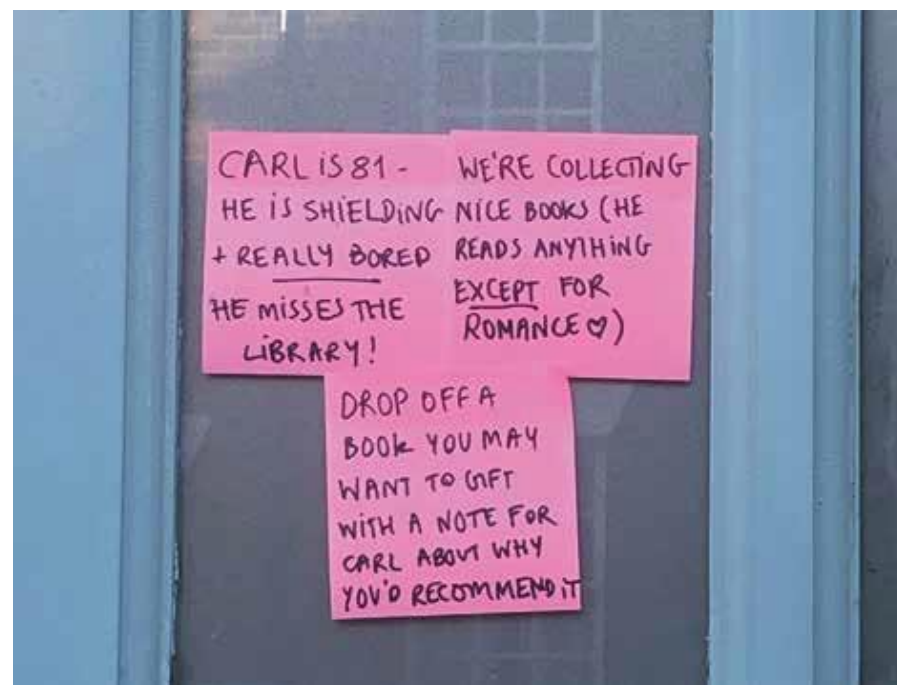 CARL iS 81 -
HE iS SHiELDiNG
+ REALLY BORED
HE MiSSES THE
LiBRARY!
WE'RE COLLECTING
NICE BOOKS (HE
READS ANYTHING
EXCEPT FOR
ROMANCE ♡)
DROP OFF A
BOOK YOU MAY
WANT TO GIFT
WITH A NOTE FOR
CARL ABOUT WHY
YOU'D RECOMMEND iT